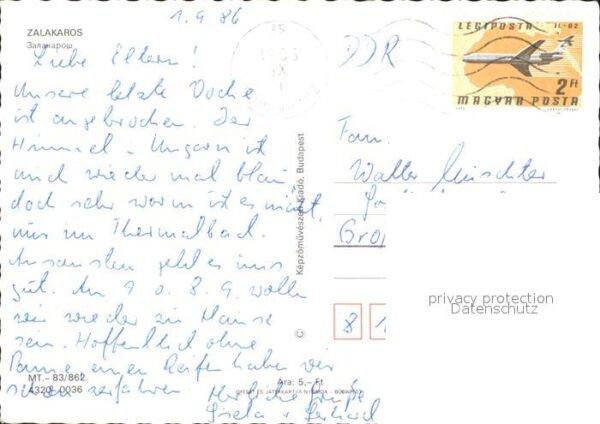 1.9.86
ZALAKAROS
Залакарош
Liebe Eltern!
Unsere letzte Woche
ist angebrochen. Der
Himmel - Ungarn ist
und wieder mal blau,
doch sehr warm ist es nicht,
nur im Thermalbad.
Ansonsten geht es uns
gut. Am 7. o. 8.9. wollen
wir wieder zu Hause
sein. Hoffentlich ohne
Panne, einen Reifen haben wir
schon zerfahren. Herzliche Grüße
Gisela u. Gerhard
MT.- 83/862
4320 0036
Ára: 5,- Ft
Képzőművészeti Kiadó, Budapest
©
DDR
LÉGIPOSTA IL-62
2 Ft
MAGYAR POSTA
Fam.
Walter
8 1
privacy protection
Datenschutz